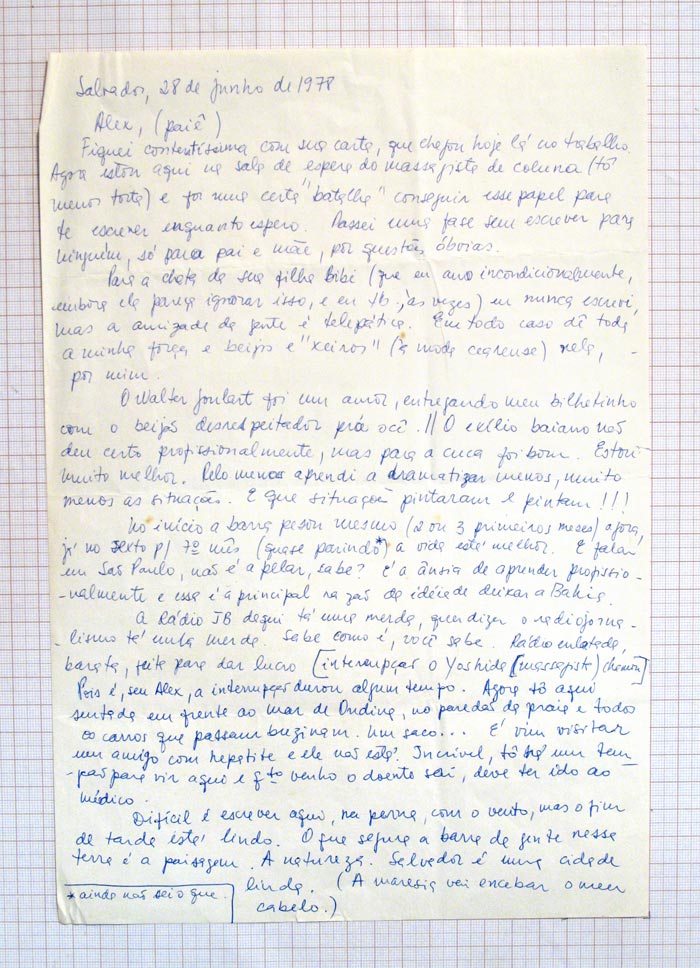 Salvador, 28 de junho de 1978
Alex, (paiê)
Fiquei contentíssima com sua carta, que chegou hoje lá no trabalho
Agora estou aqui na sala de espera do massagista de coluna (tô
menos torta) e foi uma certa "batalha" conseguir esse papel para
te escrever enquanto espero. Passei uma fase sem escrever para
ninguém, só para pai e mãe, por questões óbvias.
Para a chata da sua filha Bibi (que eu amo incondicionalmente,
embora ela pareça ignorar isso, e eu tb., às vezes) eu nunca escrevi,
mas a amizade da gente é telepática. Em todo caso dê toda
a minha força e beijos e "xeiros" (à moda cearense) nela,
por mim.
O Walter Goulart foi um amor, entregando meu bilhetinho
com o beijos desrespeitador prá ocê.!! O exílio baiano não
deu certo profissionalmente, mas para a cuca foi bom. Estou
muito melhor. Pelo menos aprendi a dramatizar menos, muito
menos as situação. E que situações pintaram e pintam!!!
No início a barra pesou mesmo (2 ou 3 primeiros meses) agora,
já no sexto p/ 7º mês (quase parindo*) a vida está melhor. E falar
em São Paulo, não é apelar, sabe? É a ânsia de aprender profissio-
-nalmente e essa é a principal razão da idéia de deixar a Bahia.
A Rádio JB daqui tá uma merda, quer dizer o radiojorna-
-lismo tá uma merda. Sabe como é, você sabe. Rádio enlatada,
barata, feita para dar lucro [interrupção o Yoshida [massagista] chamou]
Pois é, seu Alex, a interrupção durou algum tempo. Agora tô aqui
sentada em frente ao mar de Ondina, no paredão da praia e todos
os carros que passam buzinam. Um saco... É vim visitar
um amigo com hepatite e ele não está. Incrível, tô há um tem-
-pão para vir aqui e qto venho o doente sai, deve ter ido ao
médico.
Difícil é escrever aqui, na perna, com o vento, mas o fim
de tarde está lindo. O que segura a barra da gente nessa
terra é a paisagem. A natureza. Salvador é uma cidade
linda. (A maresia vai ensebar o meu
cabelo.)
*ainda não sei o que.